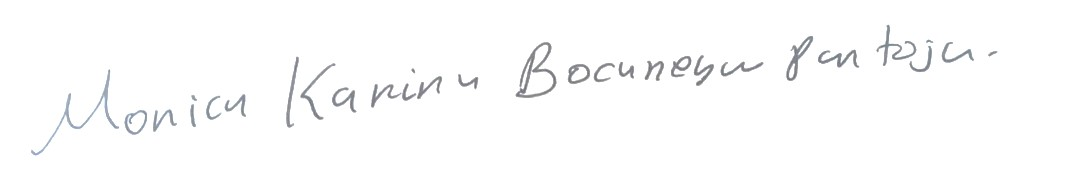 Monica Karina Bocanegra Pantoja.